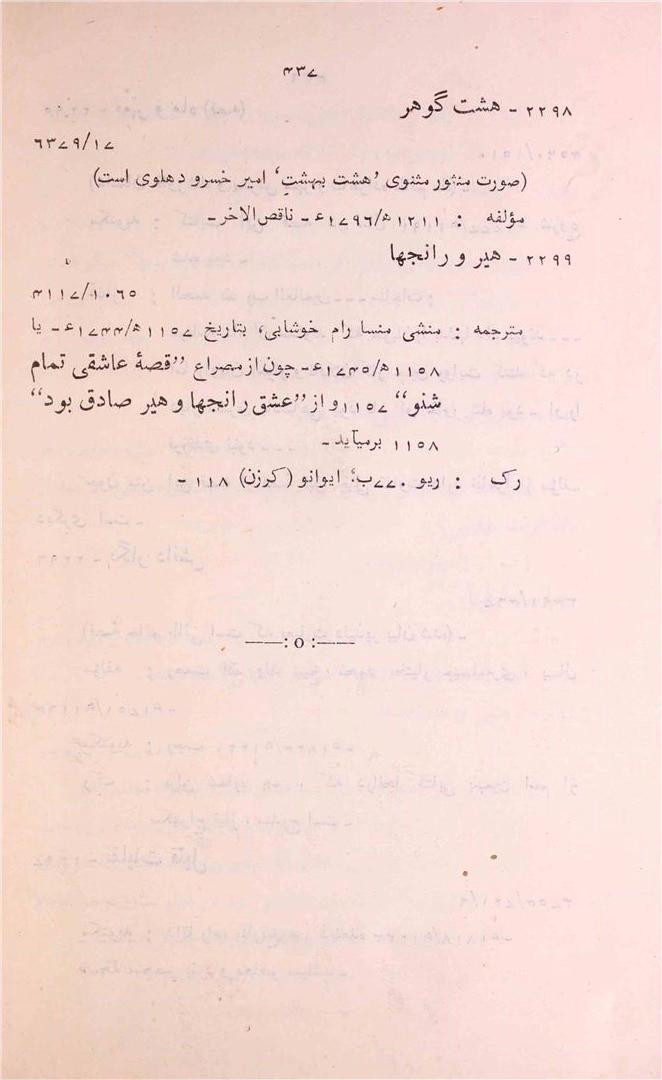 ۴۳۷
۲۲۹۸ - هشت گوهر
۶۳۷۹/۱۷
(صورت منثور مثنوی ’هشت بہشت‘ امیر خسرو دهلوی است)
مؤلفه : ۱۲۱۱ھ/۱۷۹۶ء - ناقص الاخر -
۲۲۹۹ - هیر و رانجها
۴۱۱۷/۱۰۶۵
مترجمه : منشی منسا رام خوشابی، بتاریخ ۱۱۵۷ھ/۱۷۴۴ء - یا
۱۱۵۸ھ/۱۷۴۵ء - چون از مصراع ”قصۀ عاشقی تمام
شنو“ ۱۱۵۷ و از ”عشق رانجها و هیر صادق بود“
۱۱۵۸ برمیآید -
رک : ریو ۷۷۰ب؛ ایوانو (کرزن) ۱۱۸ -
——:o:——